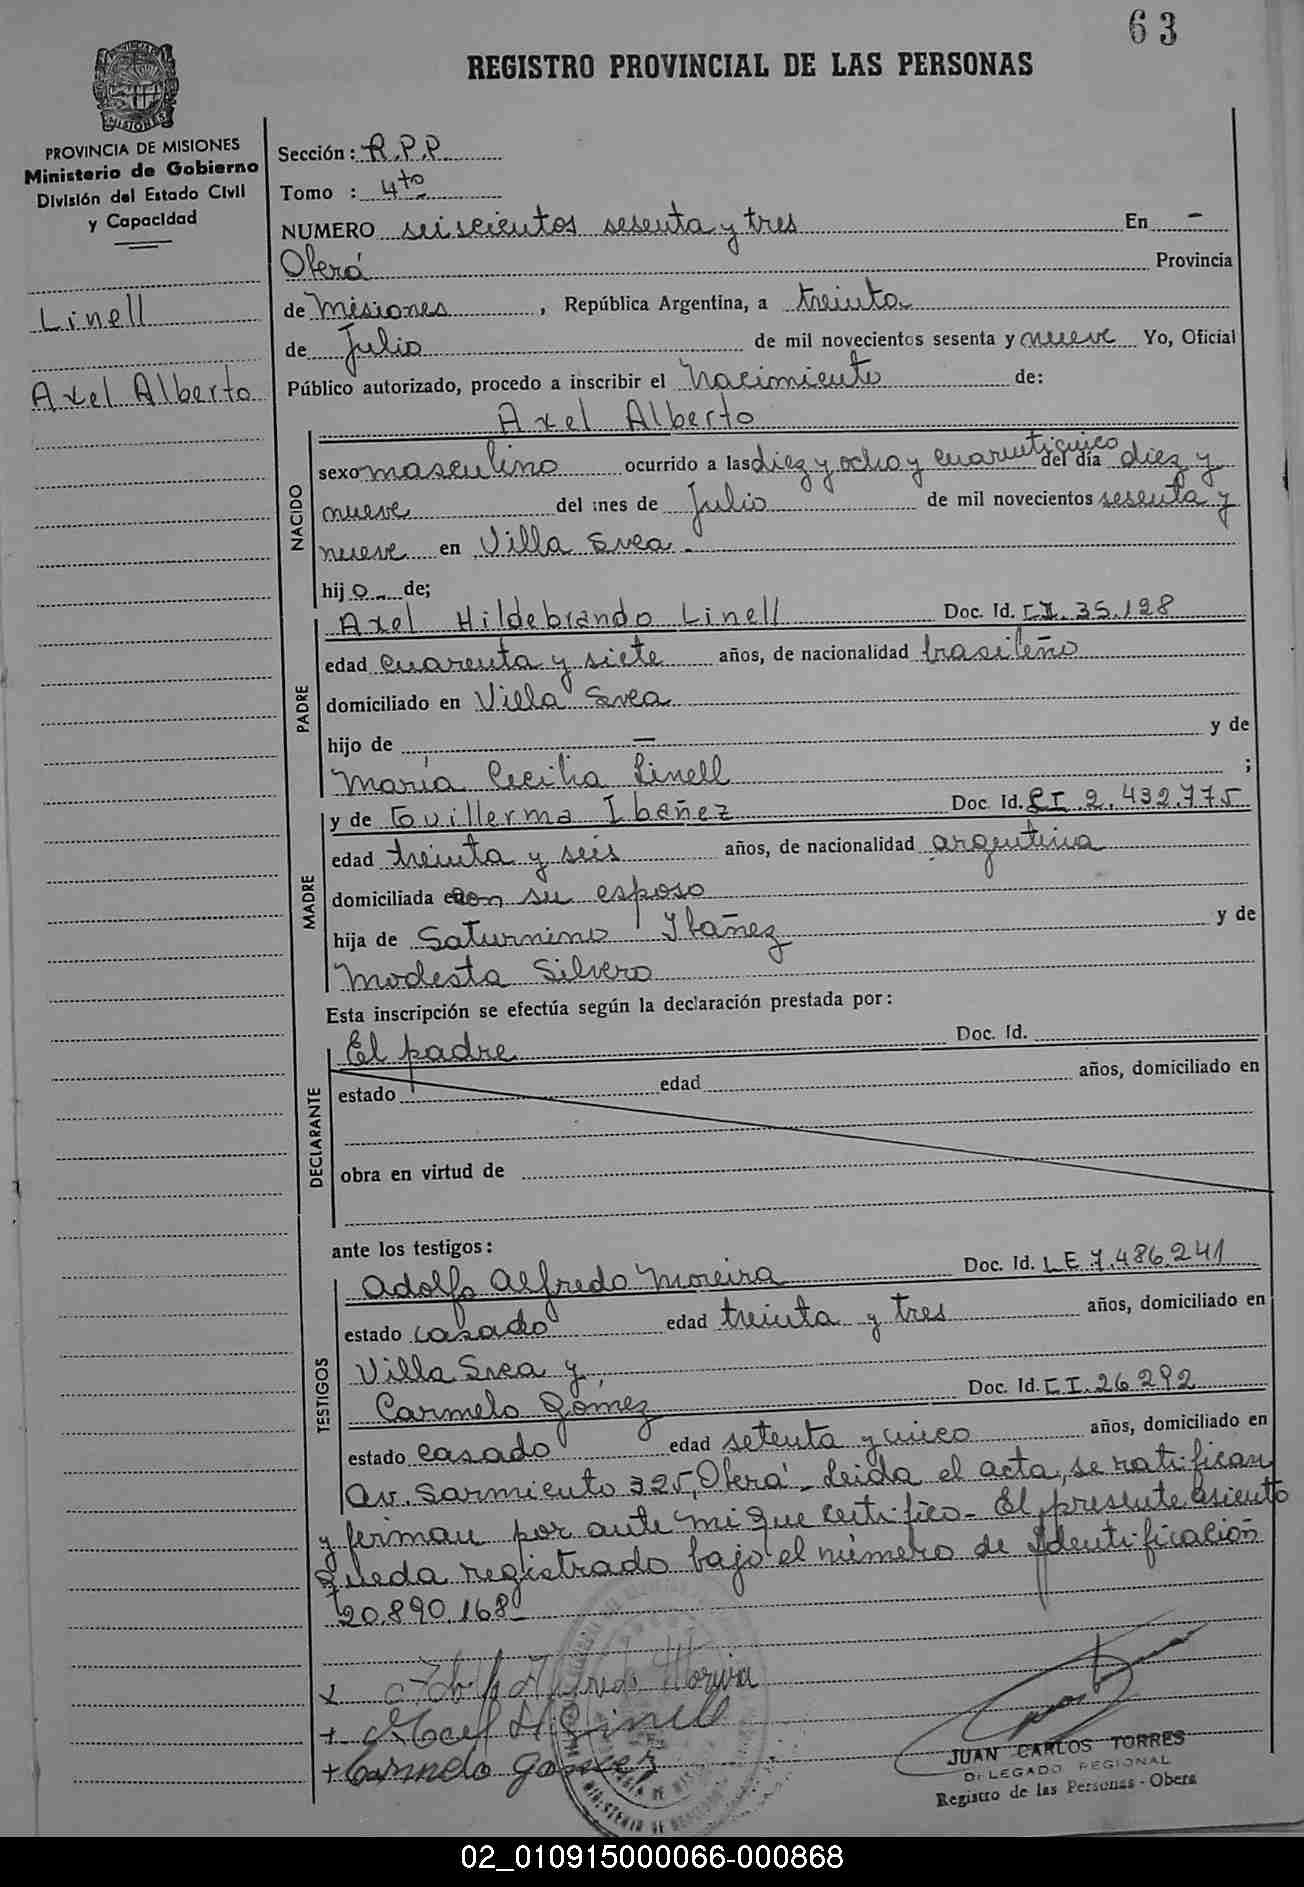 63
REGISTRO PROVINCIAL DE LAS PERSONAS
MISIONES
PROVINCIA DE MISIONES
Ministerio de Gobierno
División del Estado Civil
y Capacidad
Linell
Axel Alberto
Sección: R.P.P
Tomo : 4to
NUMERO seiscientos sesenta y tres En -
Oberá Provincia
de Misiones, República Argentina, a treinta
de Julio de mil novecientos sesenta y nueve Yo, Oficial
Público autorizado, procedo a inscribir el Nacimiento de:
Axel Alberto
NACIDO
sexo masculino ocurrido a las diez y ocho y cuarenticinco del día diez y
nueve del mes de Julio de mil novecientos sesenta y
nueve en Villa Svea -
hijo de;
PADRE
Axel Hildebrando Linell Doc. Id. CI. 35.128
edad cuarenta y siete años, de nacionalidad brasileño
domiciliado en Villa Svea
hijo de — y de
María Cecilia Linell ;
MADRE
y de Guillerma Ibañez Doc. Id. CI 2.432.775
edad treinta y seis años, de nacionalidad argentina
domiciliada con su esposo
hija de Saturnino Ibañez y de
Modesta Silvero
Esta inscripción se efectúa según la declaración prestada por:
DECLARANTE
El padre Doc. Id.
estado edad años, domiciliado en
obra en virtud de
ante los testigos:
TESTIGOS
Adolfo Alfredo Moreira Doc. Id. LE 7.486.241
estado casado edad treinta y tres años, domiciliado en
Villa Svea y
Carmelo Gómez Doc. Id. CI.26292
estado casado edad setenta y cinco años, domiciliado en
Av. Sarmiento 325, Oberá - Leida el acta, se ratifican
y firman por ante mi que certifico - El presente asiento
queda registrado bajo el número de Identificación
20.890.168
Carmelo Gomez
JUAN CARLOS TORRES
DELEGADO REGIONAL
Registro de las Personas - Obera
02_010915000066-000868